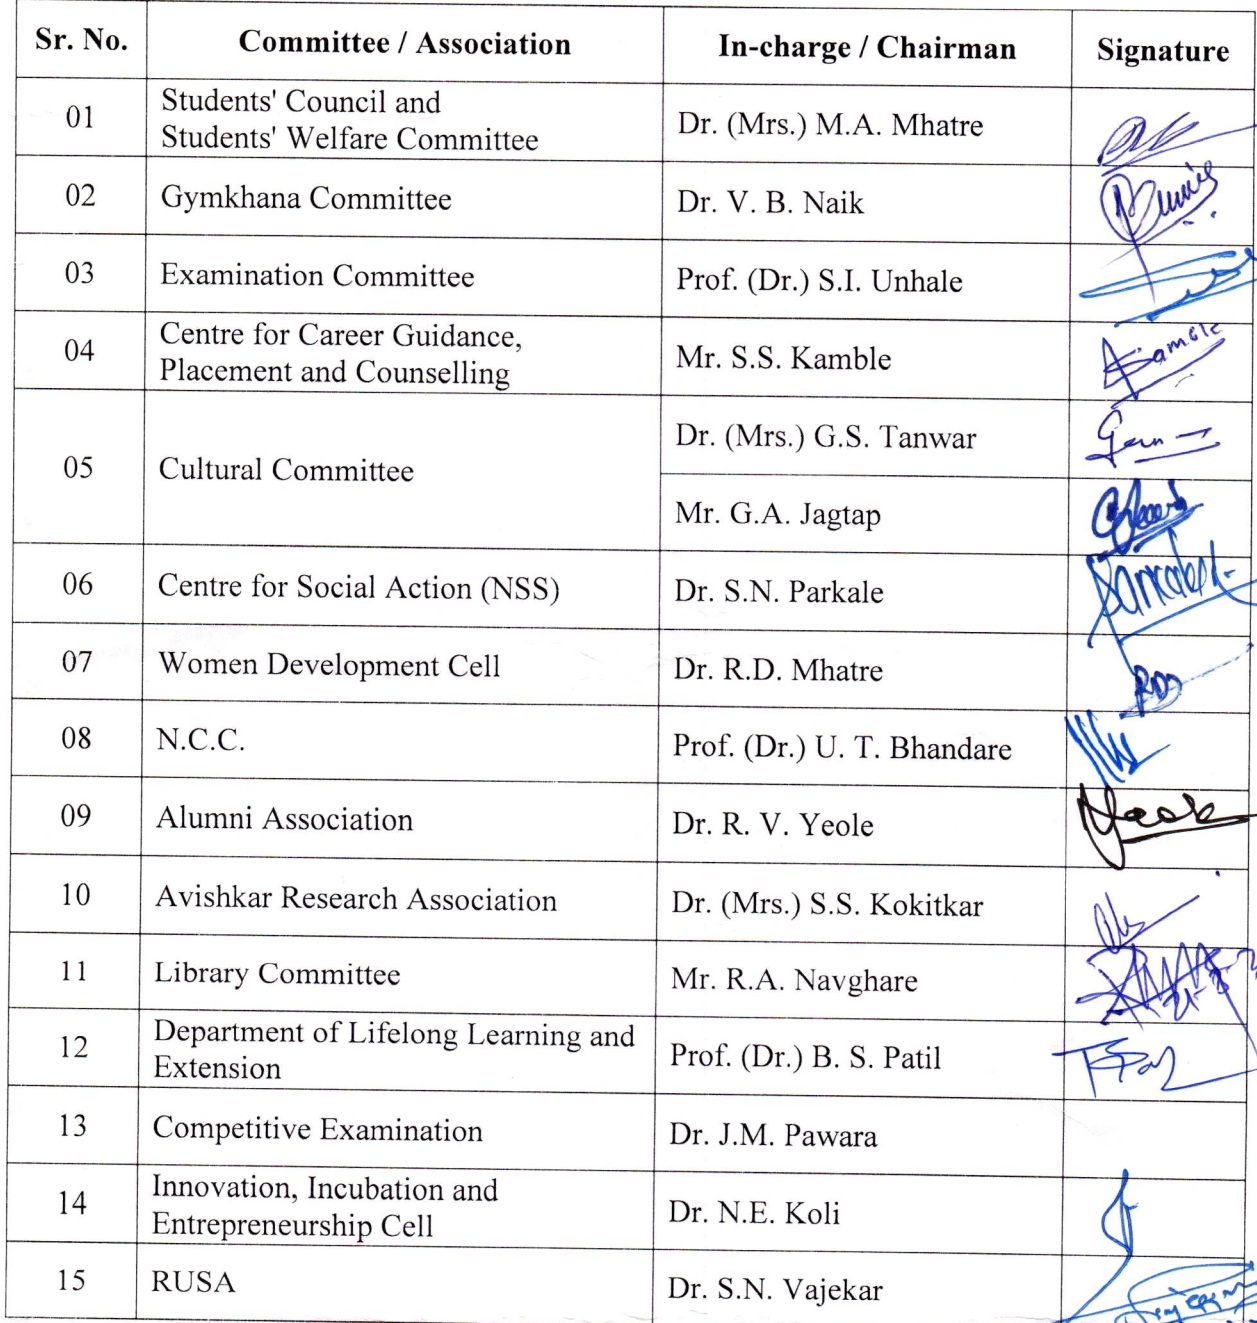 Sr. No. Committee / Association In-charge / Chairman Signature
01 Students' Council and
Students' Welfare Committee Dr. (Mrs.) M.A. Mhatre
02 Gymkhana Committee Dr. V. B. Naik
03 Examination Committee Prof. (Dr.) S.I. Unhale
04 Centre for Career Guidance,
Placement and Counselling Mr. S.S. Kamble
05 Cultural Committee Dr. (Mrs.) G.S. Tanwar
Mr. G.A. Jagtap
06 Centre for Social Action (NSS) Dr. S.N. Parkale
07 Women Development Cell Dr. R.D. Mhatre
08 N.C.C. Prof. (Dr.) U. T. Bhandare
09 Alumni Association Dr. R. V. Yeole
10 Avishkar Research Association Dr. (Mrs.) S.S. Kokitkar
11 Library Committee Mr. R.A. Navghare
12 Department of Lifelong Learning and
Extension Prof. (Dr.) B. S. Patil
13 Competitive Examination Dr. J.M. Pawara
14 Innovation, Incubation and
Entrepreneurship Cell Dr. N.E. Koli
15 RUSA Dr. S.N. Vajekar